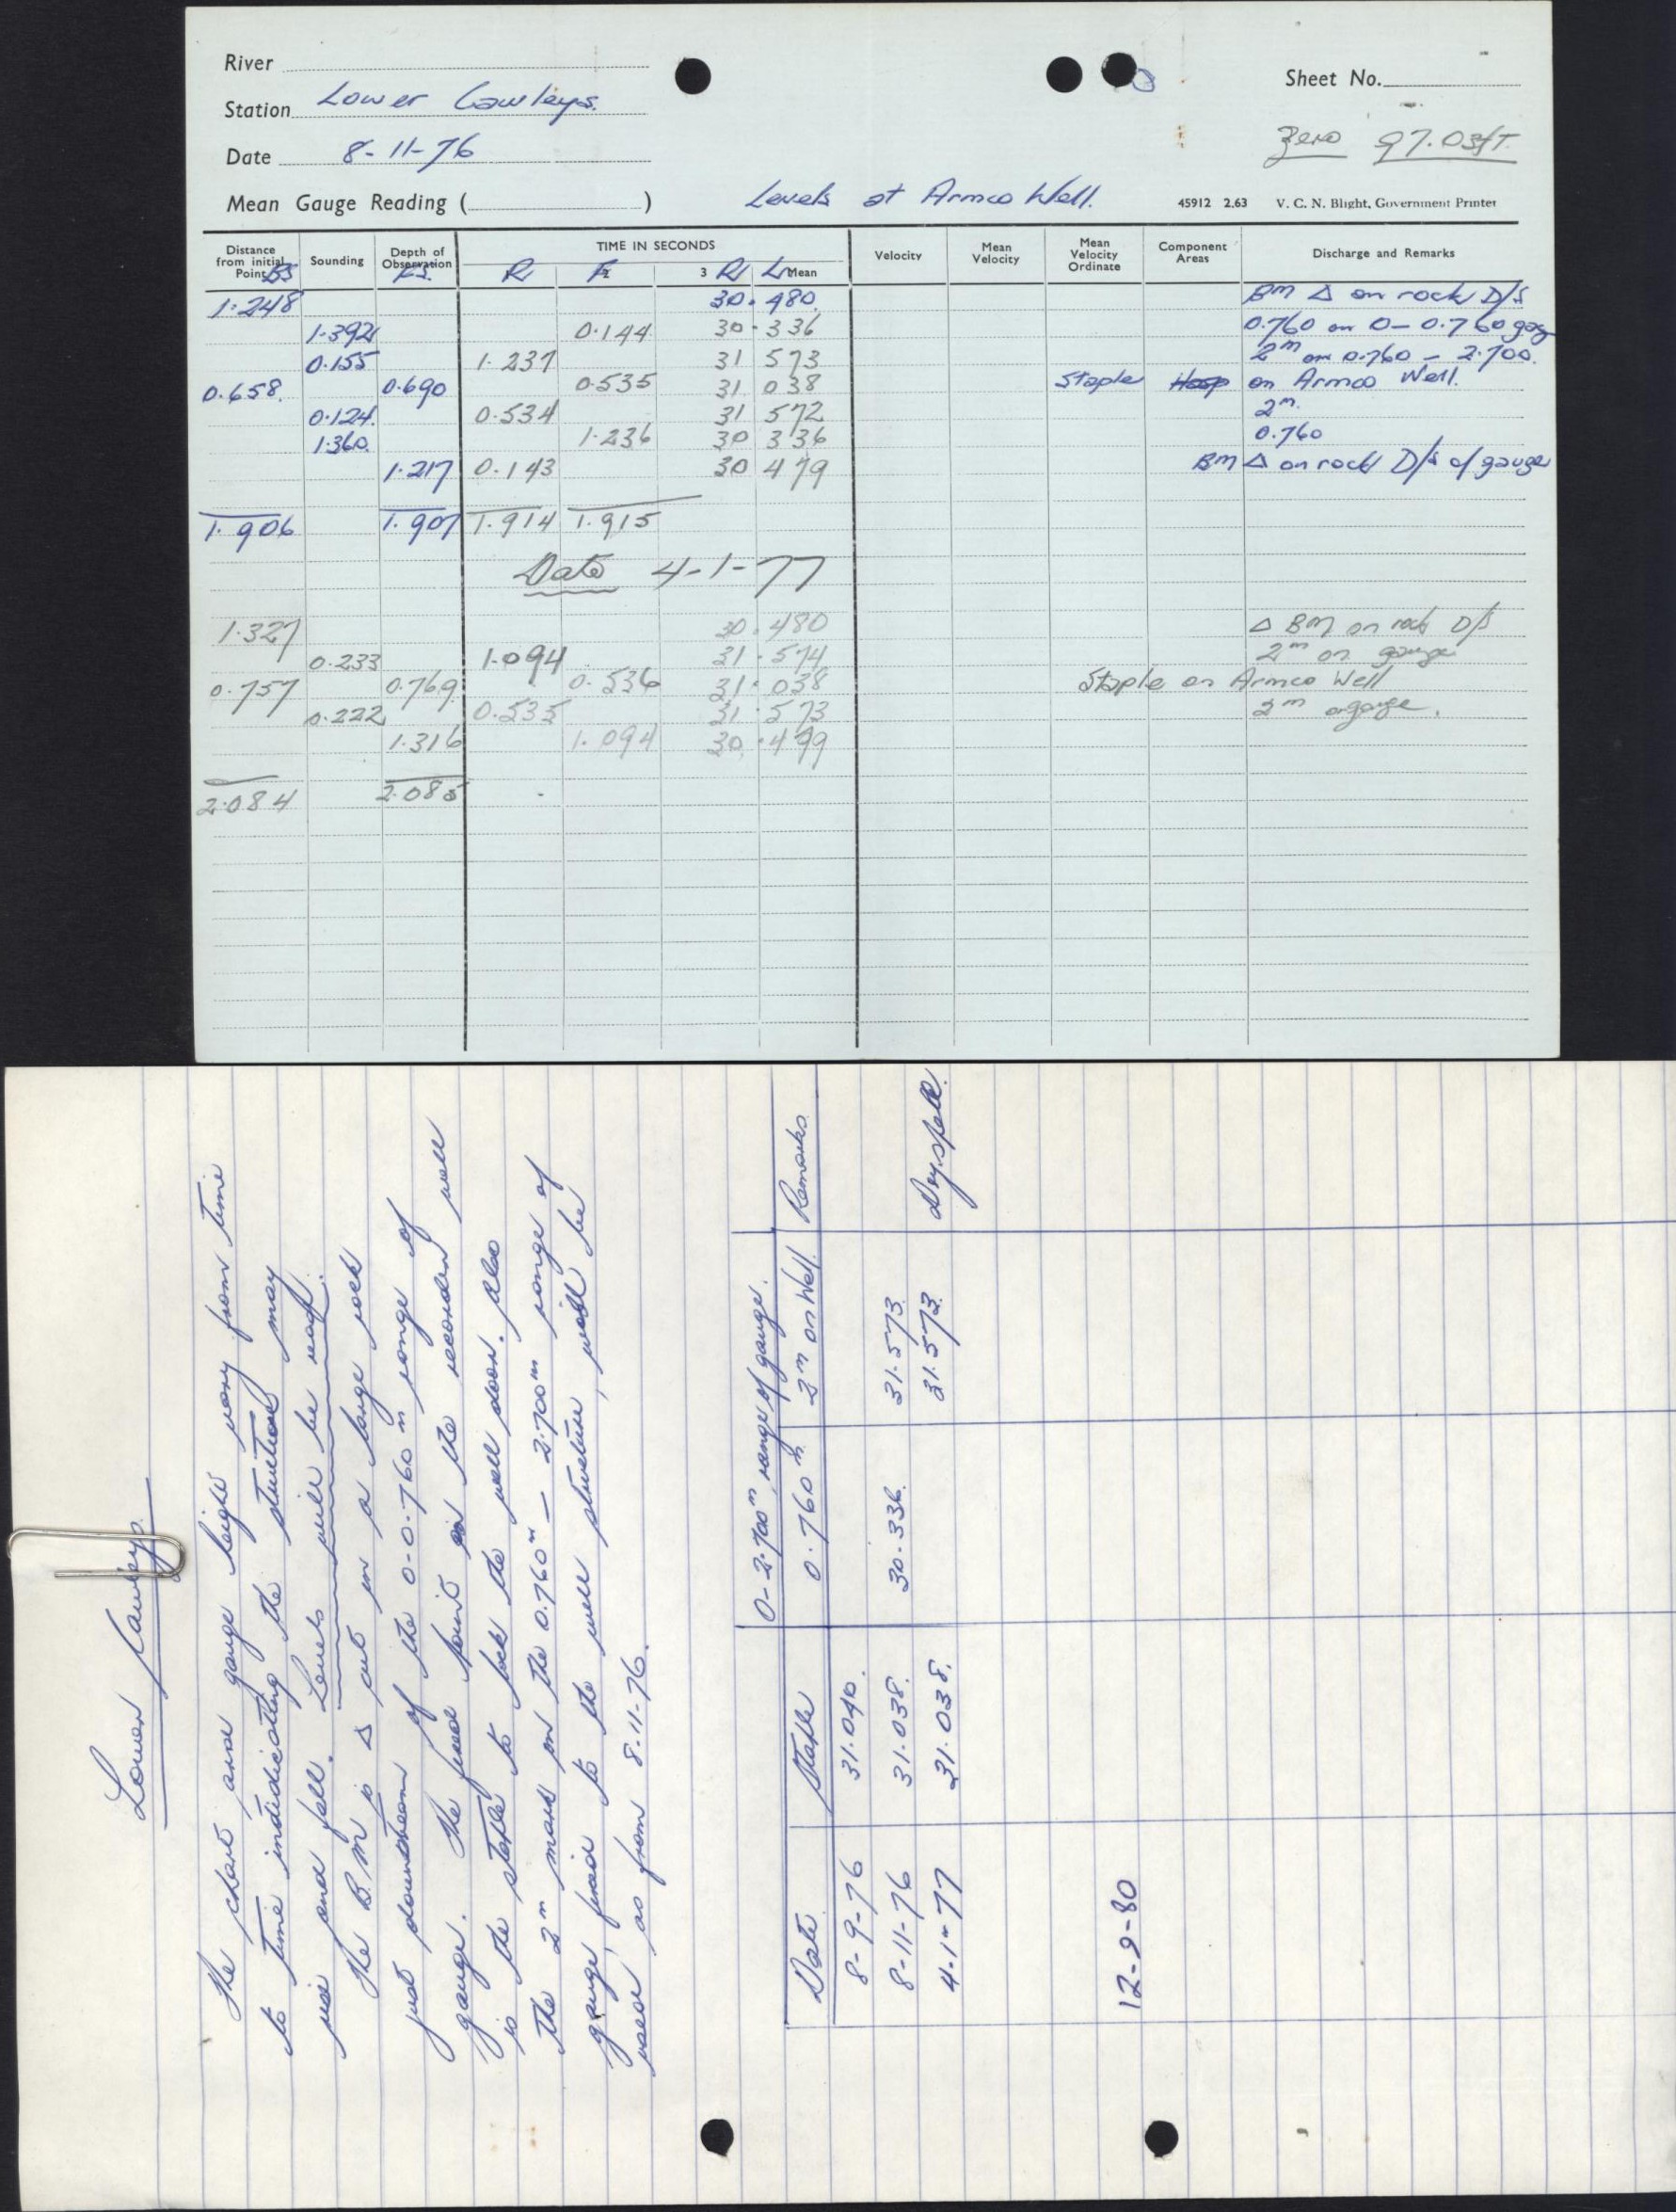 River
Sheet No.
Station Lower Cawleys.
zero 97.03ft.
Date 8-11-76
Mean Gauge Reading ( ) Levels at Armco Well. 45912 2.63 V. C. N. Blight, Government Printer
Distance from initial Point BS Sounding Depth of Observation F.S. TIME IN SECONDS R F 2 3 R L Mean Velocity Mean Velocity Mean Velocity Ordinate Component Areas Discharge and Remarks
1.248 30.480 BM Δ on rock D/S
1.392 0.144 30.336 0.760 on 0-0.760 gag
0.155 1.237 31 573 2m on 0.760 - 2.700.
0.658. 0.690 0.535 31 038 Staple Hoop on Armco Well.
0.124. 0.534 31 572 2m.
1.360. 1.236 30 336 0.760
1.217 0.143 30 479 BM Δ on rock D/s of gauge
1.906 1.907 1.914 1.915
Date 4-1-77
1.327 30.480 Δ BM on rock D/S
0.233 1.094 31.574 2m on gauge
0.757 0.769 0.536 31.038 Staple on Armco Well
0.222 0.535 31.573 2m gauge.
1.316 1.094 30.499
2.084 2.085
Lower Cawleys.
The chart and gauge height vary from time
to time indidicating the stuctued may
rise and fall. Levels will be read.
The B.M is Δ cut in a large rock
just downstream of the 0-0.760m range of
gauge. The fixed point on the recorder well
is the staple to lock the well door. Also
the 2m mark on the 0.760m - 2.700m range of
gauge, fixed to the well structure, will be
used, as from 8.11-76.
0-2.700m range of gauge.
Date Staple 0.760m 2m on Well. Remarks
8-9-76 31.040.
8-11-76 31.038. 30.336. 31.573.
4-1-77 31.038. 31.573.
12-9-80